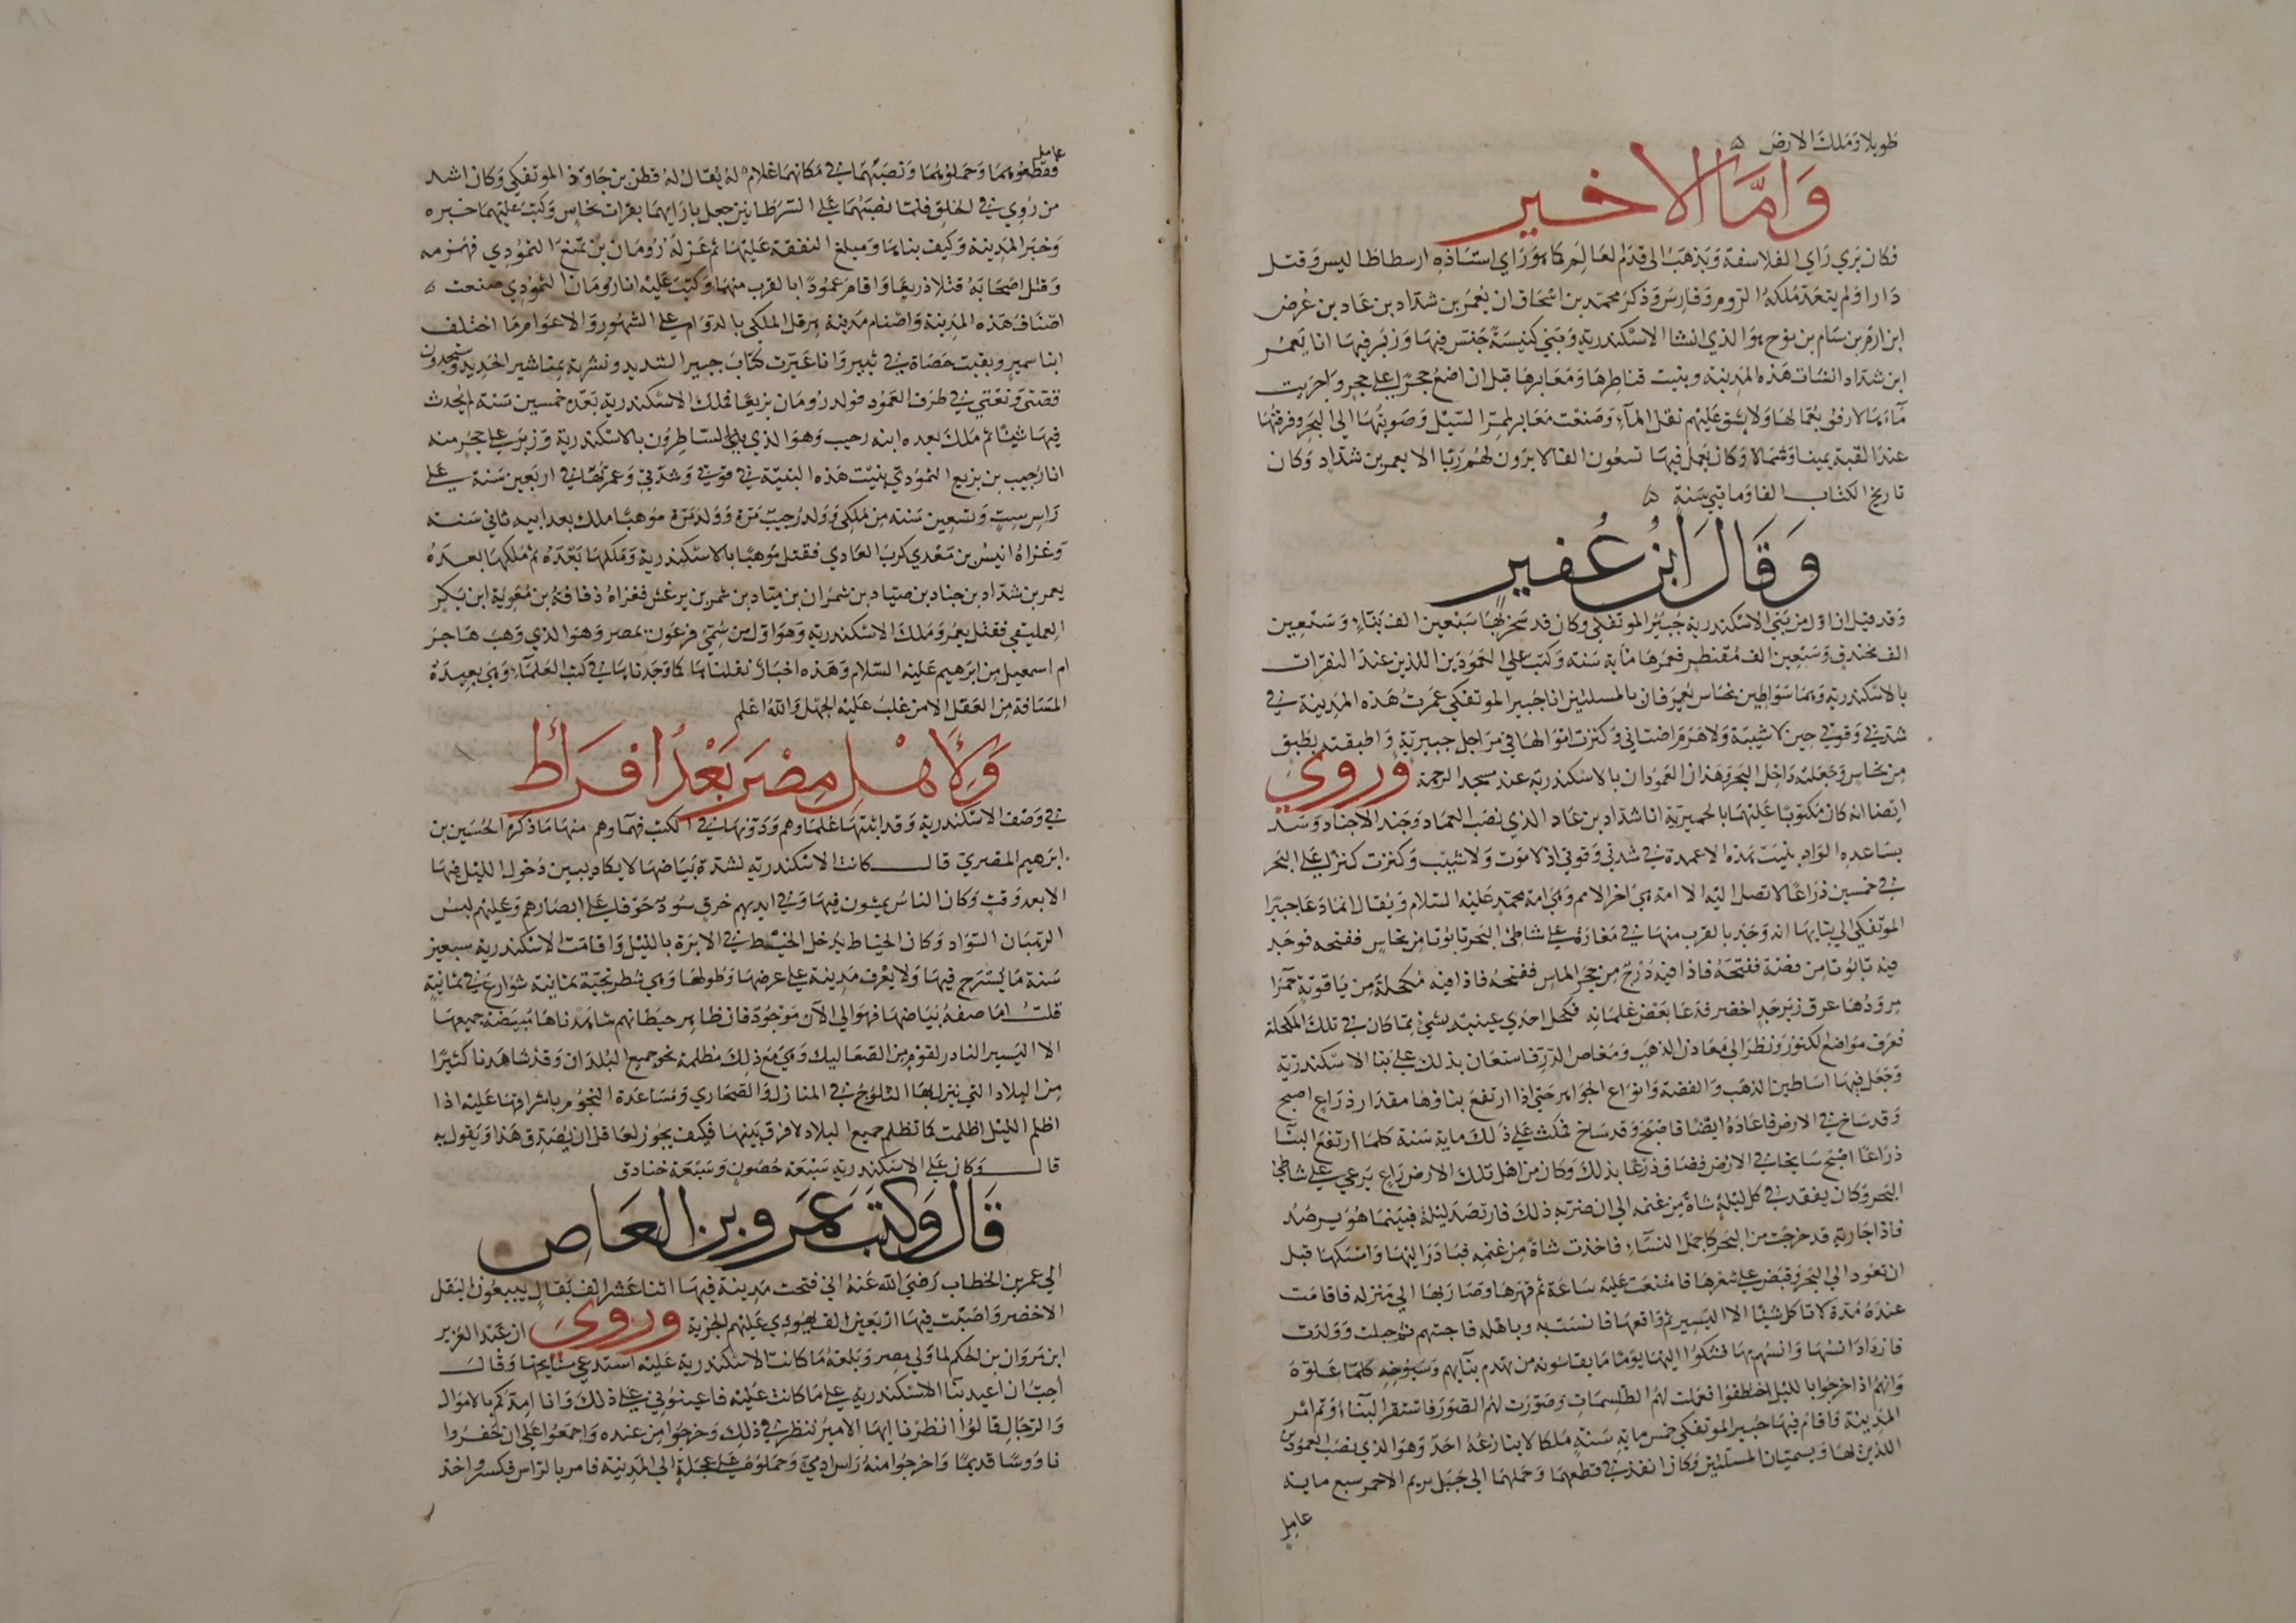 طويلا وملك الارض ه
واما الاخير
فكان يري راي الفلاسفة ويذهب الى قدم العالم كما هو راي استاذه ارسطاطاليس وقتل
دارا ولم يتعد ملكه الروم وفارس وذكر محمد بن اسحاق ان يعمر بن شداد بن عاد بن عوض
ابن ارم بن سام بن نوح هو الذي انشا الاسكندرية وبني كنيسة جنس فيها وزبر فيها انا يعمر
ابن شداد انشات هذه المدينة وبنيت قناطرها ومعابرها قبل ان اضع حجرا على حجر واجريت
مآءها لارفق بعمالها ولا يشق عليهم نقل المآء وصنعت معابر لممر السيل وصوبتها الى البحر وفرقتها
عند القبة يمينا وشمالا وكان يعمل فيها تسعون الفا لا يرون لهم ربا الا يعمر بن شداد وكان
تاريخ الكتاب الفا وماتي سنة ه
وقال ابن عفير
وقد قيل ان اول من بني الاسكندرية جبير الموتفكي وكان قد سخر بها سبعين الف بناء وسبعين
الف مخندق وسبعين الف مقنطر فعمرها ماية سنة وكتب على العمودين اللذين عند البقرات
بالاسكندرية وهما سواطين نحاس يعرفان بالمسلتين انا جبير الموتفكي عمرت هذه المدينة في
شدتي وقوتي حين لا شيبة ولا هرم اضناني وكنزت اموالها في مراجل جبيرية واطبقته بطبق
من نحاس وجعلته داخل البحر وهذان العمودان بالاسكندرية عند مسجد الرحمة وروي
ايضا انه كان مكتوبا عليهما بالحميرية انا شداد بن عاد الذي نصب العماد وجند الاجناد وسد
بساعده الواد بنيت هذه الاعمدة في شدتي وقوتي اذ لا موت ولا شيب وكنزت كنزا على البحر
في خمسين ذراعا لا تصل اليه الا امة هي اخر الامم وهي امة محمد عليه السلام ويقال انما دعا جبيرا
الموتفكي الى بنايها انه وجد بالقرب منها في مغارة على شاطئ البحر تابوتا من نحاس ففتحه فوجد
فيه تابوتا من فضة ففتحه فاذا فيه درج من حجر الماس ففتحه فاذا فيه مكحلة من ياقوتة حمرا
مرودها عرق زبرجد اخضر فدعا بعض غلمانه فكحل احدي عينيه بشيء مما كان في تلك المكحلة
فعرف مواضع الكنوز ونظر الى معادن الذهب ومغاص الدر فاستعان بذلك على بنا الاسكندرية
وجعل فيها اساطين الذهب والفضة وانواع الجواهر حتى اذا ارتفع بناوها مقدار ذراع اصبح
وقد ساخ في الارض فاعاده ايضا فاصبح وقد ساخ فمكث على ذلك ماية سنة كلما ارتفع البنآ
ذراعا اصبح سايخا في الارض فضاق ذرعا بذلك وكان من اهل تلك الارض راع يرعي على شاطئ
البحر وكان يفقد في كل ليلة شاة من غنمه الى ان ضر به ذلك فارتصد ليلة فبينما هو يرصد
فاذا جارية قد خرجت من البحر كاجمل النسآء فاخذت شاة من غنمه فبادر اليها وامسكها قبل
ان تعود الى البحر وقبض على شعرها فامتنعت عليه ساعة ثم قهرها وصار بها الى منزله فاقامت
عنده مدة لا تاكل شيئا الا اليسير ثم واقعها فانست به وباهله فاحبتهم ثم حملت وولدت
فازداد انسها وانسهم بها فشكوا اليها يوما ما يقاسونه من تهدم بنآيهم وسيوخه كلما علوه
وانهم اذا خرجوا بالليل اختطفوا فعملت لهم الطلسمات وصورت لهم الصور فاستقر البناء وتم امر
المدينة واقام فيها جبير الموتفكي خمس ماية سنة ملكا لا ينازعه احد وهو الذي نصب العمودين
اللذين لها ويسميان المسلتين وكان انفذ في قطعهما وحملهما الى جبل بريم الاحمر سبع ماية
عامل
عامل
فقطعوهما وحملوهما ونصبهما في مكانهما غلام له يقال له قطن بن جاوذ الموتفكي وكان اشد
من روي في الخلق فلما نصبهما على السرطانين جعل بازايهما بقرات نحاس وكتب عليهما خبره
وخبر المدينة وكيف بناها ومبلغ النفقة عليها ثم غزله رومان بن تمنع الثمودي فهزمه
وقتل اصحابه قتلا ذريعا واقام عمودا بالقرب منها وكتب عليه انا رومان الثمودي صنعت ه
اصناف هذه المدينة واصنام مدينة هرقل الملكي بالدوام على الشهور والاعوام ما اختلف
ابنا سمير وبقيت حصاة في ثبير وانا غيرت كتاب جبير الشديد ونشرته بمناشير الحديد وستجدون
قصتي ونعتي في طرف العمود فولد رومان بزيعا فملك الاسكندرية بعده خمسين سنة لم يحدث
فيها شيئا ثم ملك بعده ابنه رحيب وهو الذي بني الساطرون بالاسكندرية وزبر على حجر منه
انا رحيب بن بزيع الثمودي بنيت هذه البنية في قوتي وشدتي وعمرتها في اربعين سنة على
راس ست وتسعين سنة من ملكي وولد رحيب مرة وولد مرة موهبا ملك بعد ابيه ثاني سنة
وغزاه انيس بن معدي كرب العادي فقتل موهبا بالاسكندرية وملكها بعده ثم ملكها بعده
يعمر بن شداد بن جناد بن صياد بن شمران بن مياد بن شمر بن يرعش فغزاه ذفافة بن معوية ابن بكر
العمليقي فقتل يعمر وملك الاسكندرية وهو اول من سمي فرعون بمصر وهو الذي وهب هاجر
ام اسمعيل من ابرهيم عليه السلام وهذه اخبار نقلناها كما وجدناها في كتب العلمآء وهي بعيدة
المسافة من العقل الا من غلب عليه الجهل والله اعلم
ولاهل مصر بعد افراط
في وصف الاسكندرية وقد اثبتها علماوهم ودونها في الكتب فيها وهم منها ما ذكره الحسين بن
ابرهيم المصري قال كانت الاسكندرية لشدة بياضها لا يكاد يبين دخول الليل فيها
الا بعد وقت وكان الناس يمشون فيها وفي ايديهم خرق سود خوفا على ابصارهم وعليهم لبس
الرهبان السواد وكان الخياط يدخل الخيط في الابرة بالليل واقامت الاسكندرية سبعين
سنة ما يسرج فيها ولا يعرف مدينة على عرضها وطولها وهي شطرنجية ثمانية شوارع في ثمانية
قلت اما صفة بياضها فهو الى الآن موجود فان ظاهر حيطانهم شاهدناها مبيضة جميعها
الا اليسير النادر لقوم من الصعاليك وهي مع ذلك مظلمة نحو جميع البلدان وقد شاهدنا كثيرا
من البلاد التي ينزل بها الثلوج في المنازل والصحاري ومساعدة النجوم باشراقها عليه اذا
اظلم الليل اظلمت كما تظلم جميع البلاد لا فرق بينها فكيف يجوز لعاقل ان يصدق هذا ويقول به
قال وكان على الاسكندرية سبعة حصون وسبعة خنادق
قال وكتب عمرو بن العاص
الى عمر بن الخطاب رضي الله عنه اني فتحت مدينة فيها اثنا عشر الف بقال يبيعون البقل
الاخضر واصبت فيها اربعين الف يهودي عليهم الجزية وروي ان عبد العزيز
ابن مروان بن الحكم لما ولي مصر وبلغه ما كانت الاسكندرية عليه استدعي مشايخها وقال
احب ان اعيد بنآ الاسكندرية على ما كانت عليه فاعينوني على ذلك وانا امدكم بالاموال
والرجال قالوا انظرنا ايها الامير ننظر في ذلك وخرجوا من عنده واجمعوا على ان حفروا
ناووسا قديما واخرجوا منه راس ادمي وحملوه على عجلة الى المدينة فامر بالراس فكسر واخذ